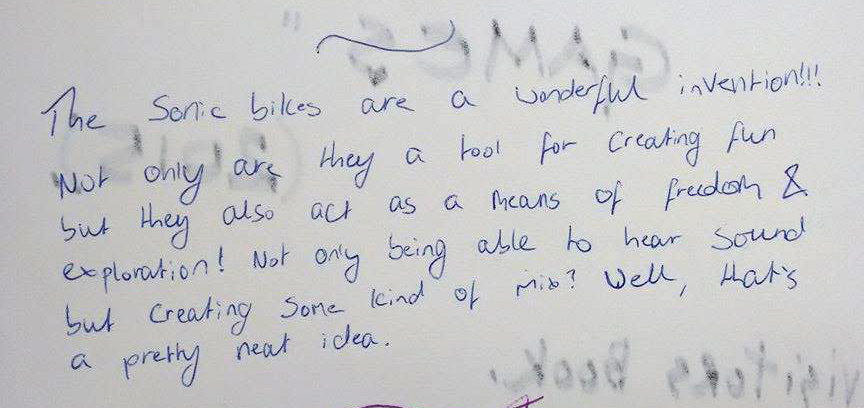 The Sonic bikes are a wonderful invention!!!
Not only are they a tool for creating fun
but they also act as a means of freedom &
exploration! Not only being able to hear sound
but creating some kind of mix? Well, that's
a pretty neat idea.
GAMES"
(2015)
Visitors Book.